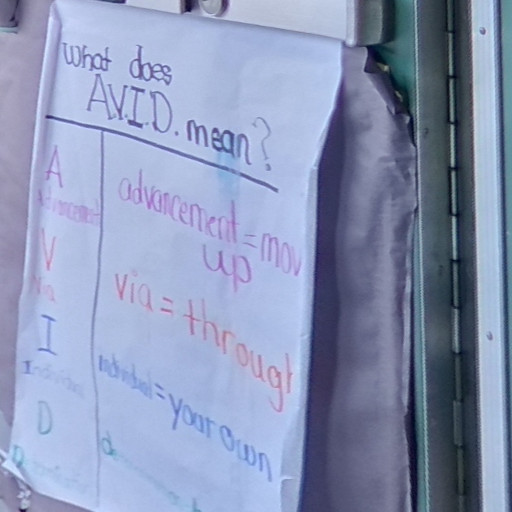 What does
A.V.I.D. mean?
A
Advancement
advancement = mov
up
V
Via
via = through
I
Individual
individual = your own
D